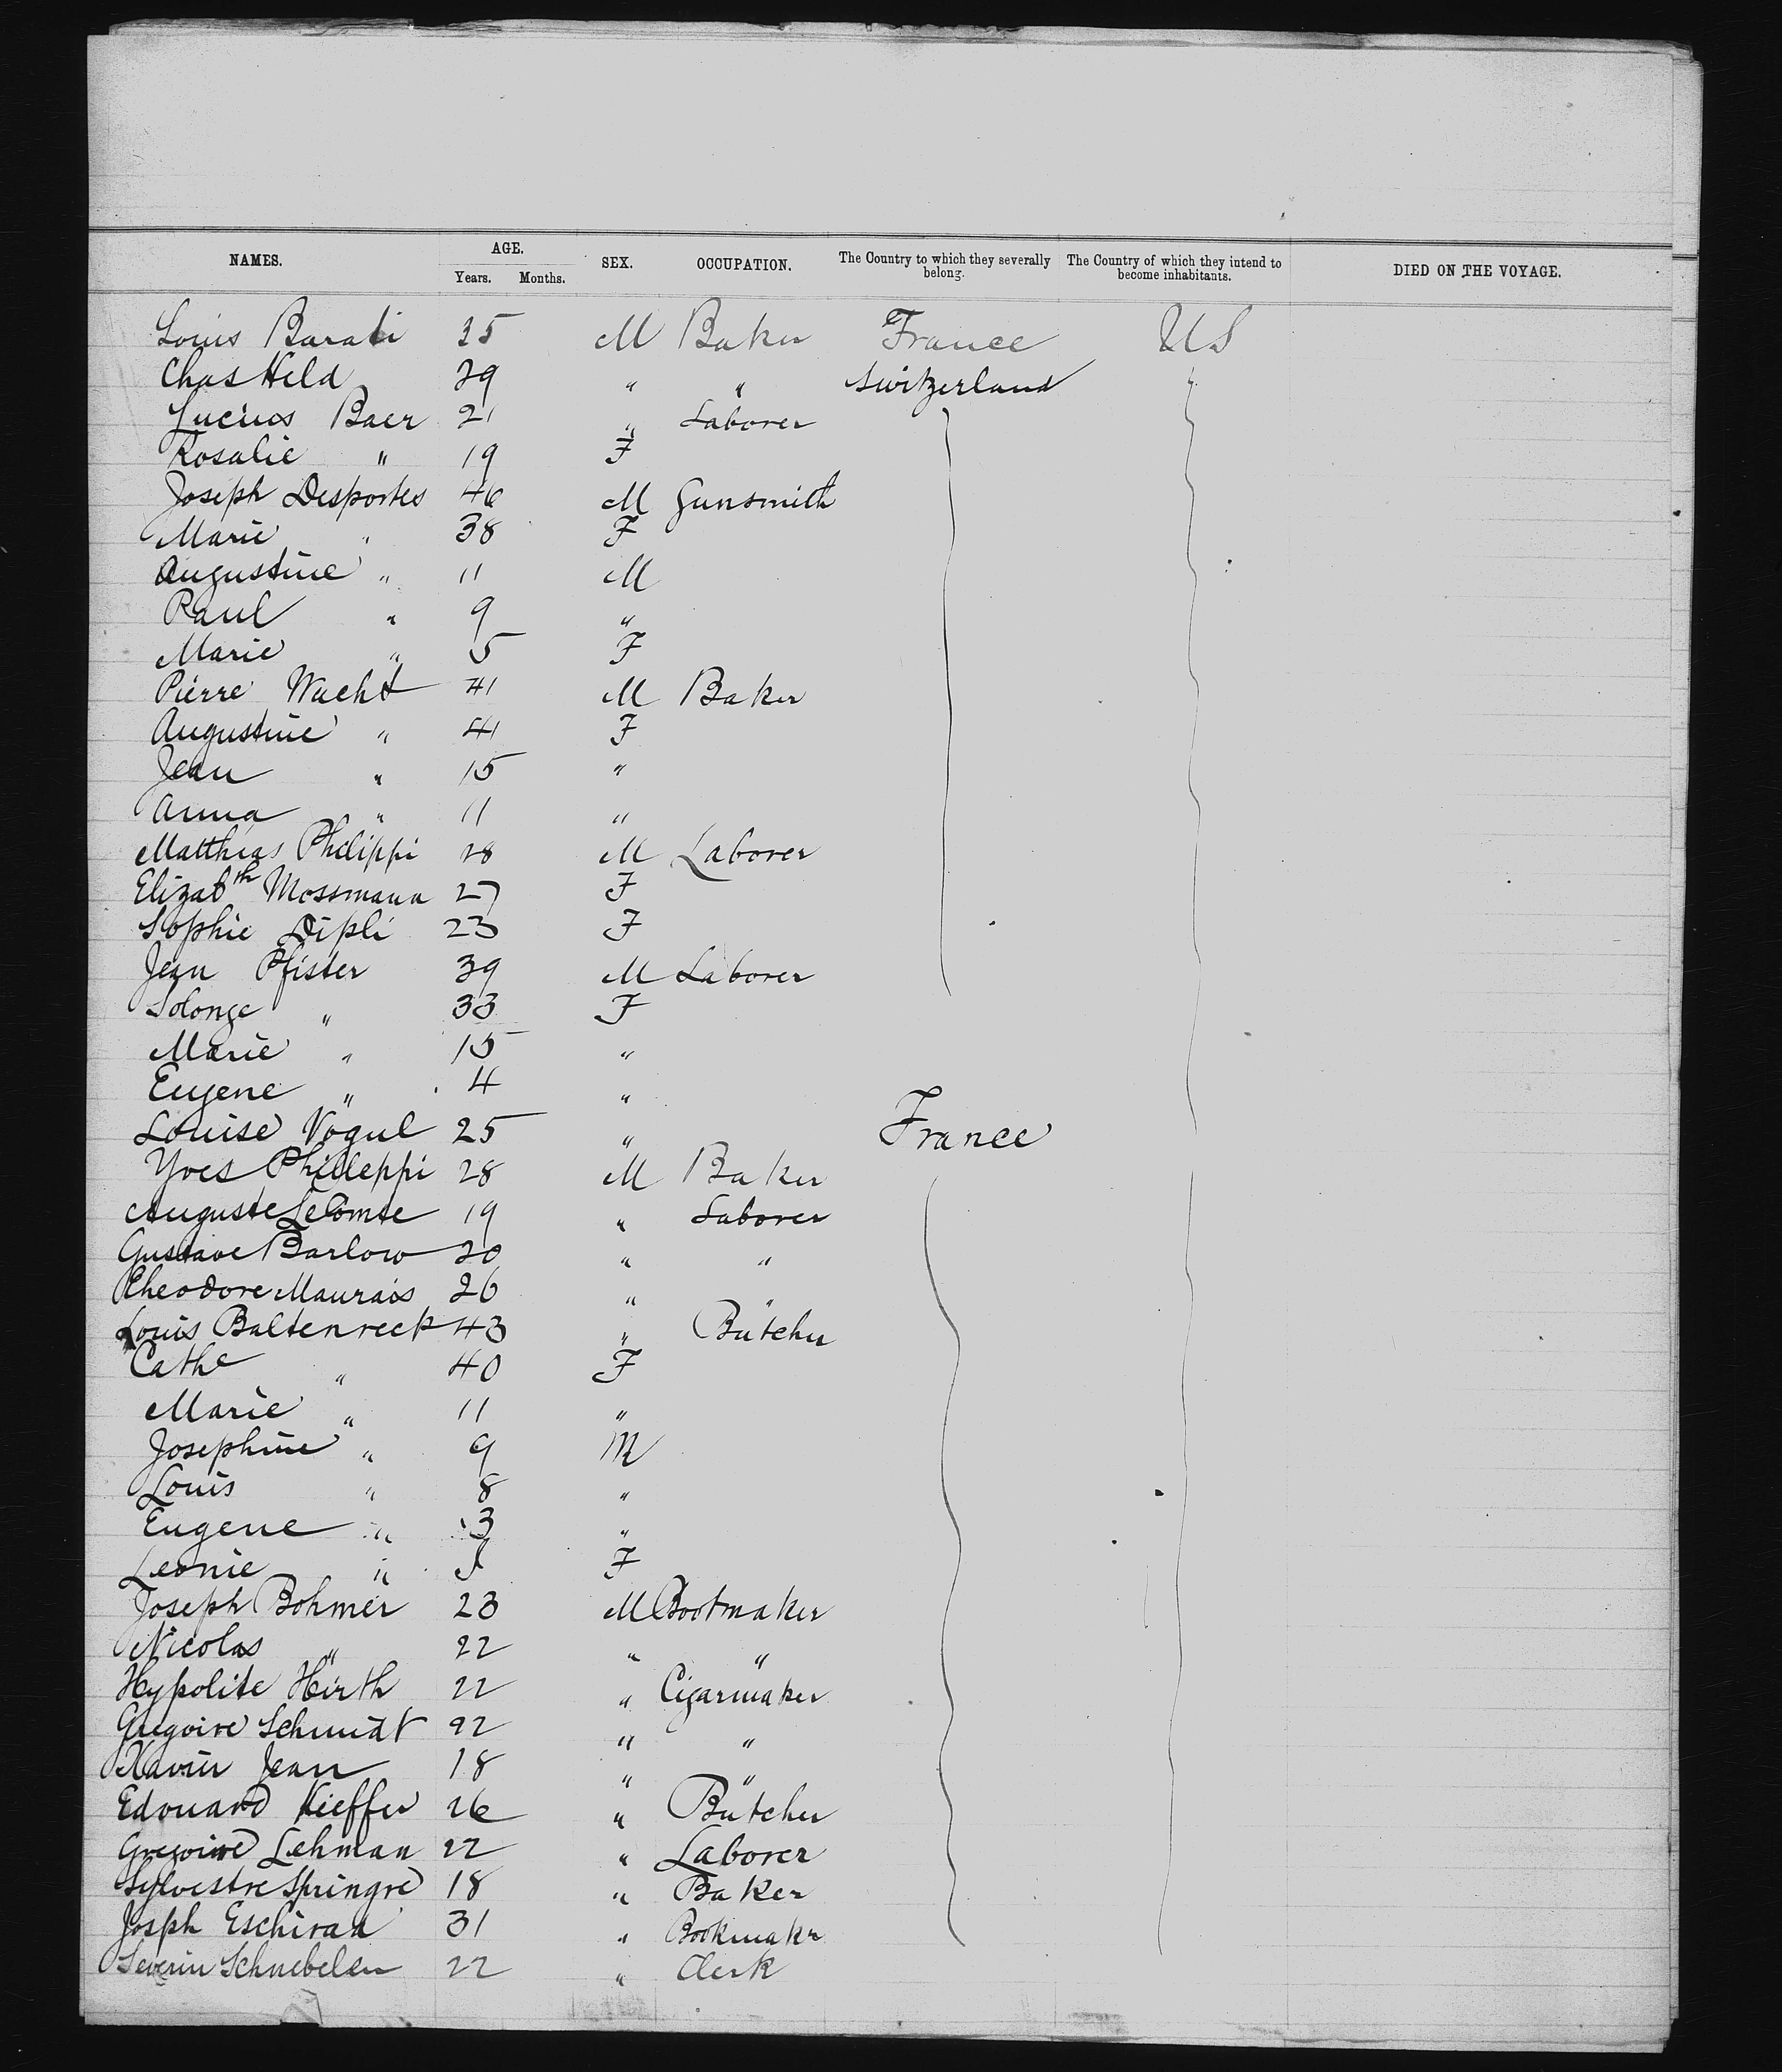 NAMES. AGE. SEX. OCCUPATION. The Country to which they severally belong. The Country of which they intend to become inhabitants. DIED ON THE VOYAGE.
Years. Months.
Louis Barati 35 M Baker France US
Chas Held 29 " " Switzerland
Lucius Baer 21 " Laborer
Rosalie " 19 F
Joseph Desportes 46 M Gunsmith
Marie " 38 F
Augustine " 11 M
Paul " 9 "
Marie " 5 F
Pierre Wacht 41 M Baker
Augustine " 41 F
Jean " 15 "
Anna " 11 "
Matthias Philippi 28 M Laborer
Elizabth Mossmann 27 F
Sophie Dipli 23 F
Jean Pfister 39 M Laborer
Solonge " 33 F
Marie " 15 "
Eugene " 4 "
Louise Vogul 25 " France
Yves Philleppi 28 M Baker
Auguste LeComte 19 " Laborer
Gustave Barlow 20 " "
Theodore Maurais 26 " "
Louis Baltenreck 43 " Butcher
Cathe " 40 F
Marie " 11 "
Josephine " 9 M
Louis " 8 "
Eugene " 3 "
Leonie " F
Joseph Bohmer 23 M Bootmaker
Nicolas " 22 " "
Hypolite Hirth 22 " Cigarmaker
Gregoire Schmidt 22 " "
Xavier Jean 18 " "
Edouard Kieffer 26 " Butcher
Gregoire Lehman 22 " Laborer
Sylvestre Springre 18 " Baker
Josph 31 " Bookmaker
Severin Schnebelen 22 " Clerk